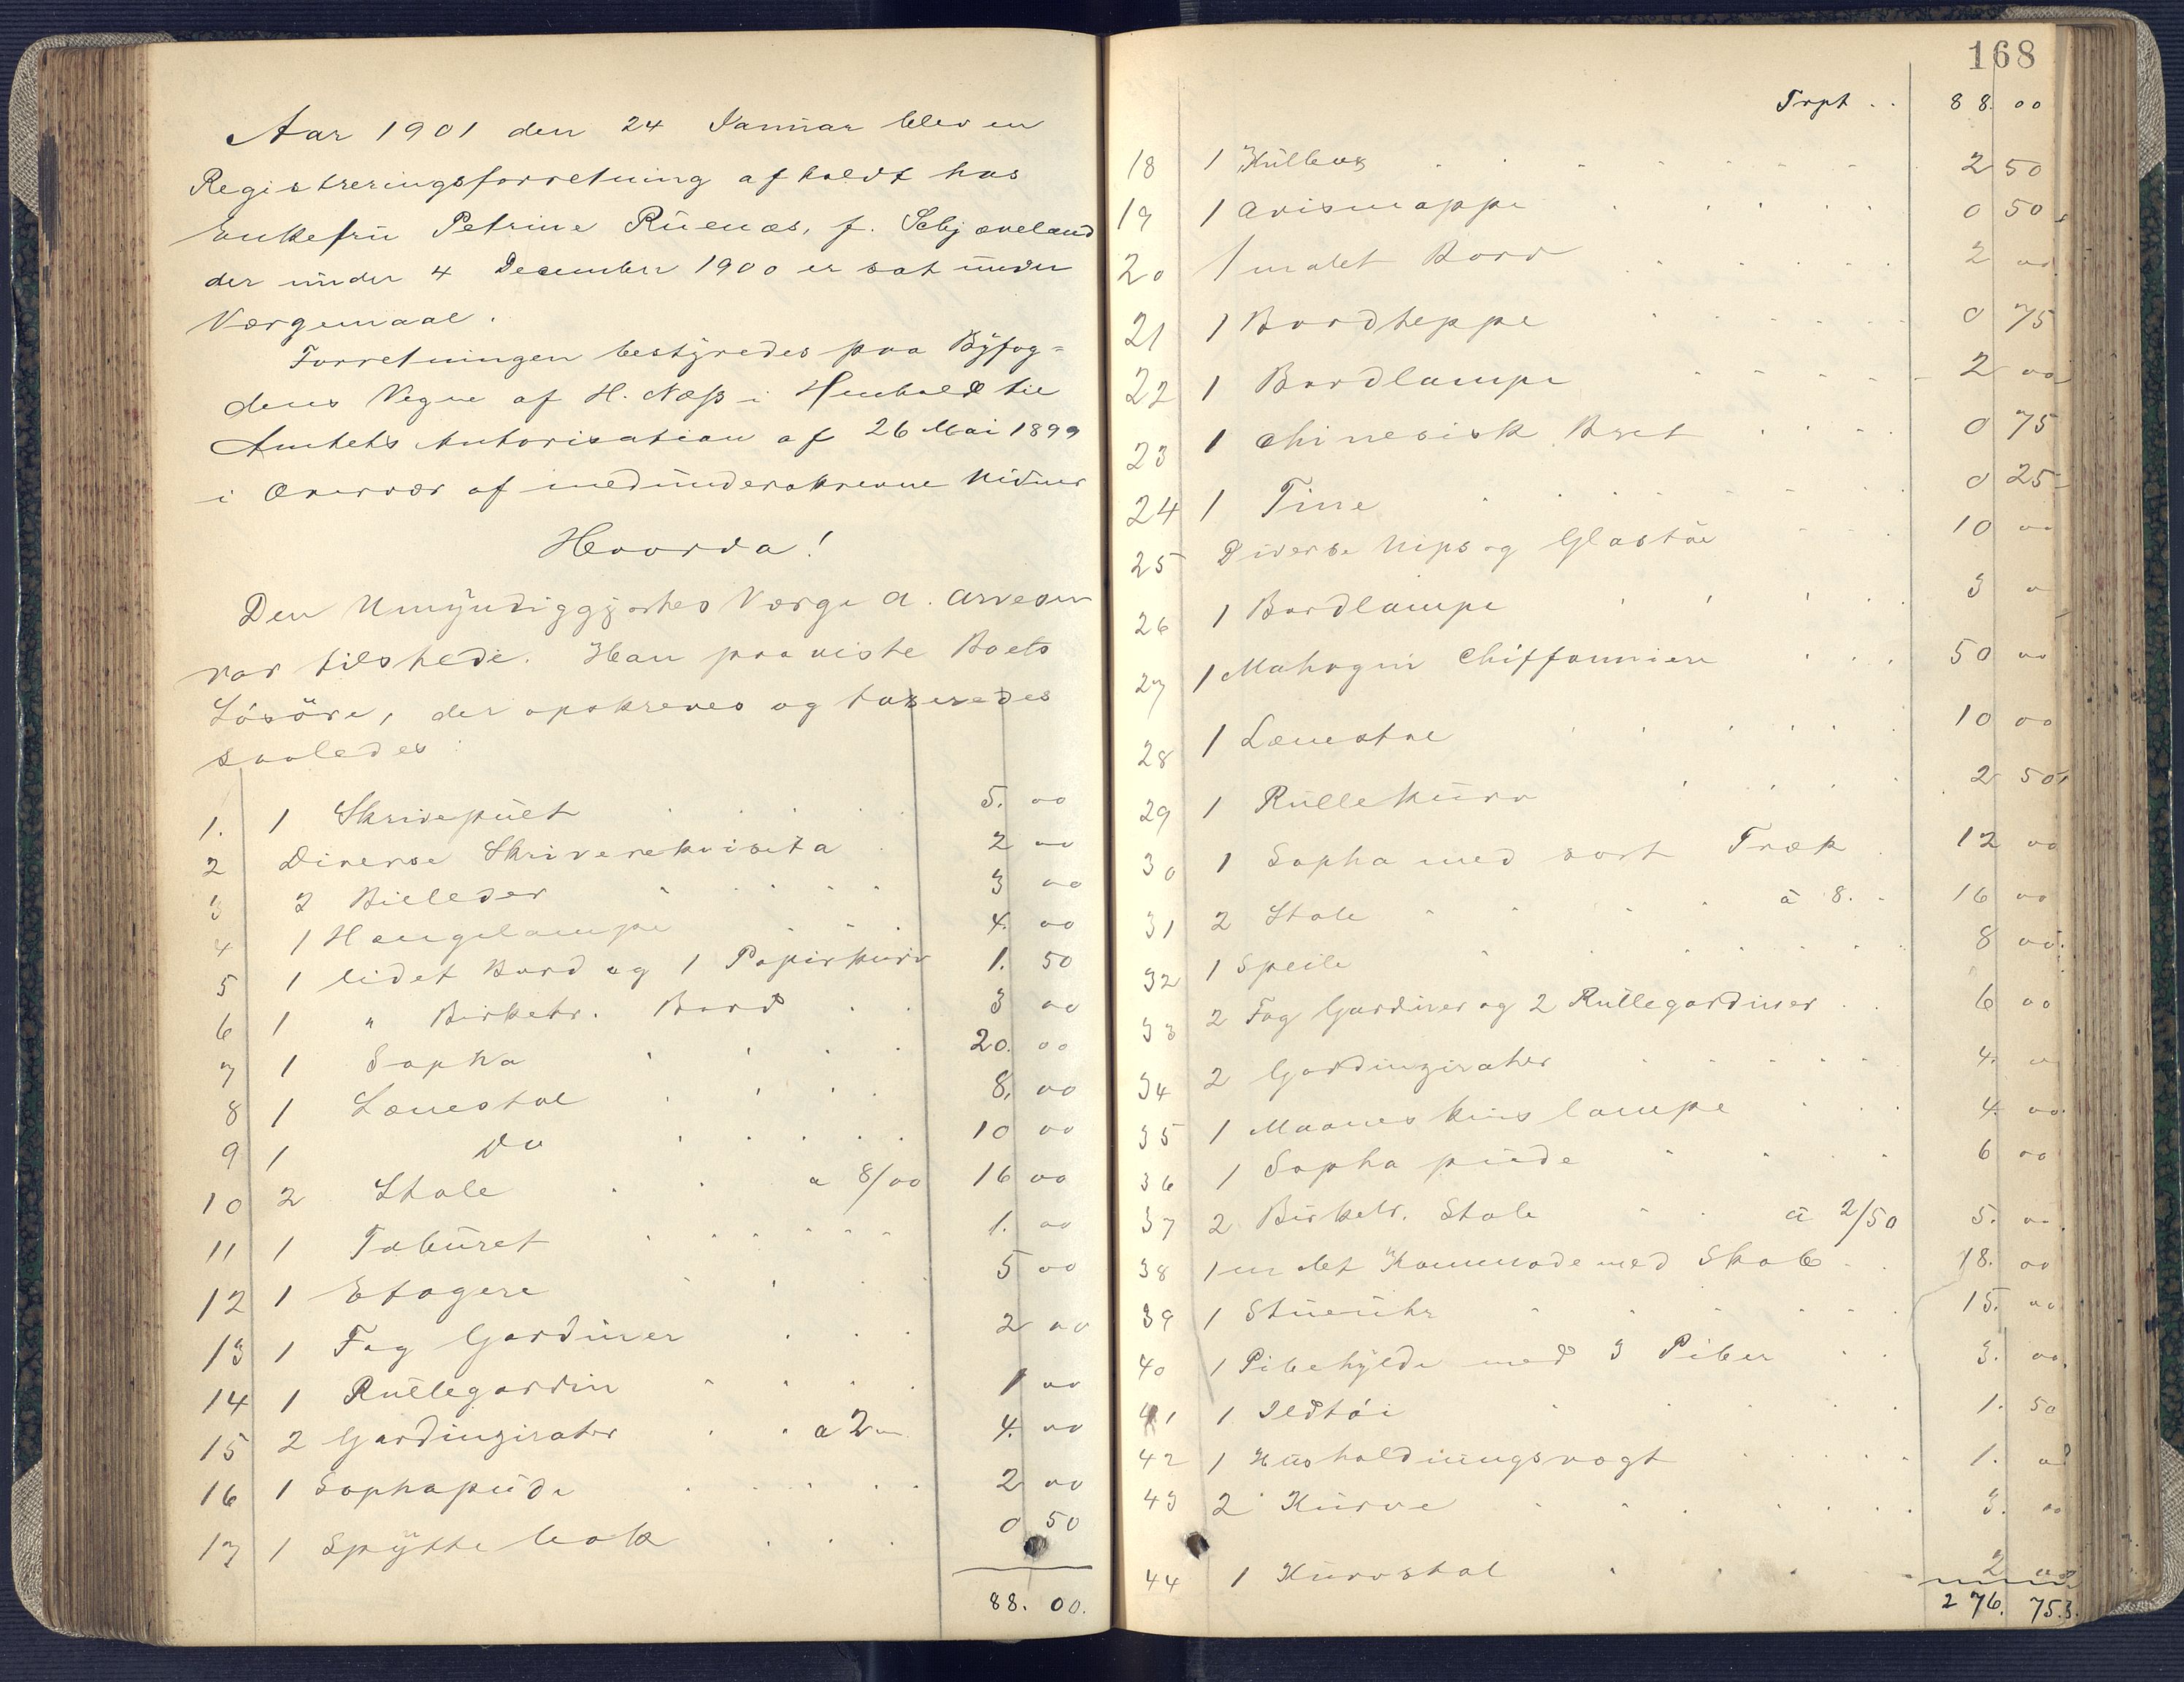 Aar 1901 den 24 Januar blev en
Registreringsforretning afholdt hos
Enkefru Petrine Ruenæs, f. Schjæveland
der under 4 December 1900 er sat under
Værgemaal.
Forretningen bestyredes paa Byfog=
dens Vegne af H. Næss i Henhold til
Amtets Autorisation af 26 Mai 1899
i Overvær af medunderskrevne Vidner
Hvorda!
Den Umyndiggjortes Værge A. Arvesen
var tilstede. Han paaviste Boets
Løsøre, der opskreves og taxeredes
saaledes:
1. 1 Skrivepult 5. 00
2 Diverse Skriverekvisita 2 00
3 2 Billeder 3 00
4 1 Hængelampe 4. 00
5 1 lidet Bord og 1 Papirkurv 1. 50
6 1 " Birketr. Bord 3 00
7 1 Sopha 20. 00
8 1 Lænestol 8. 00
9 1 Do 10 00
10 2 Stole a 8/00 16 00
11 1 Taburet 1. 00
12 1 Etagere 5 00
13 1 Fag Gardiner 2 00
14 1 Rullegardin 1 00
15 2 Gardinzirater a 2 4. 00
16 1 Sophapude 2 00
17 1 Spyttebak 0 50
88. 00.
168
Trpt .. 88. 00
18 1 2 50
19 1 Avismappe 0 50
20 1 malet Bord 2 00
21 1 Bordteppe 0 75
22 1 Bordlampe 2 00
23 1 Chinesisk Bret 0 75
24 1 Tine 0 25
25 Diverse Nips og Glastøi 10 00
26 1 Bordlampe 3 00
27 1 Mahogni Chiffonniere 50 00
28 1 Lænestol 10 00
29 1 Rullekurv 2 50
30 1 Sopha med sort Træk 12 00
31 2 Stole à 8. 16 00
32 1 Speile 8 00
33 2 Fag Gardiner og 2 Rullegardiner 6 00
34 2 Gardinzirater 4. 00
35 1 Maaneskinslampe 4. 00
36 1 Sopha pude 6 00
37 2 Birketr. Stole à 2/50 5. 00
38 1 malet Kommode med Skab 18. 00
39 1 Stueuhr 15. 00
40 1 Pibehylde med 3 Piber 3. 00
41 1 Ildtøi 1. 50
42 1 Husholdningsvægt 1. 00
43 2 Kurve 3. 00
44 1 Kurvstol 2 00
276. 75.